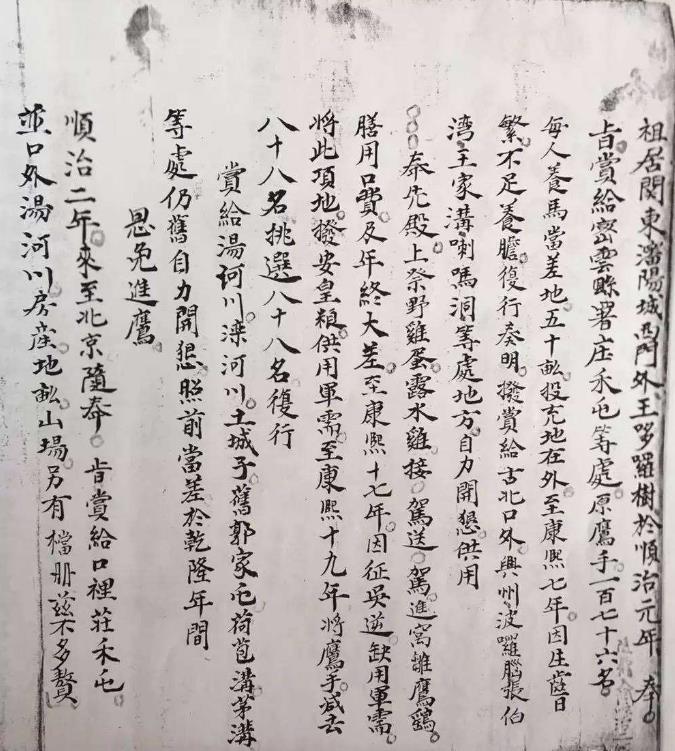 祖居関東瀋陽城西門外王哆羅樹於順治元年奉
旨賞給密雲縣署庄禾屯等處原鷹手一百七十六名
每人養馬當差地五十畝投充地在外至康熙七年因生齒日
繁不足養膽復行奏明撥賞給古北口外興州波羅腦張伯
湾王家溝喇嘛洞等處地方自力開懇供用
奉先殿上祭野雞蛋露水雞接駕送駕進窩雛鷹鷂
膳用口費及年終大差至康熙十七年因征吳逆缺用軍需
將此項地撥安皇粮供用軍需至康熙十九年將鷹手減去
八十八名挑選八十八名復行
賞給湯河川滦河川土城子舊郭家屯荷苞溝茅溝
等處仍舊自力開懇照前當差於乾隆年間
恩免進鷹
順治二年來至北京隨奉旨賞給口裡莊禾屯
並口外湯河川房產地畝山場另有檔册兹不多贅